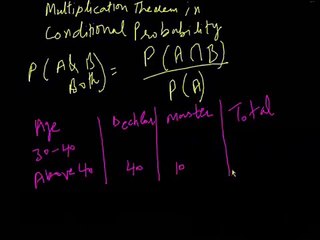 Multiplication Theorem in
Conditional Probability
P(A & B Both) = P(A∩B) / P(A)
Age Bachlor Master Total
30-40
Above 40 40 10